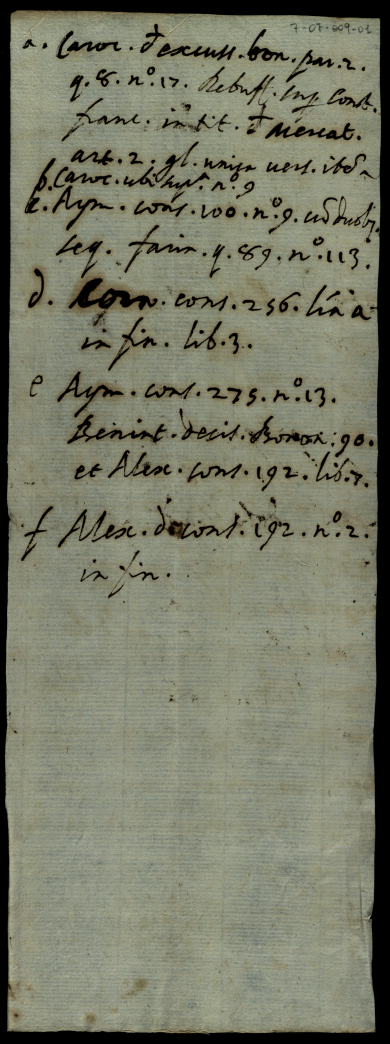 7-07-009-01
a. Caroc. d̄ excuss. bon. par. 2.
q. 8. nº. 17. Rebuff. sup. const.
franc. in tit. d̄ mercat.
art. 2. gl. unica vers. ibōa
b. Caroc. ubi supr. nº. 9
c. Aym. cons. 100. nº. 9. cū duob.
seq. farin. q. 89. nº. 113.
d. Corn. cons. 256. lin a
in fin. lib. 3.
e Aym. cons. 275. nº. 13.
Benint. decis. Bonon. 90.
et Alex. cons. 192. lib. 7.
f Alex. d. cons. 192. nº. 2.
in fin.